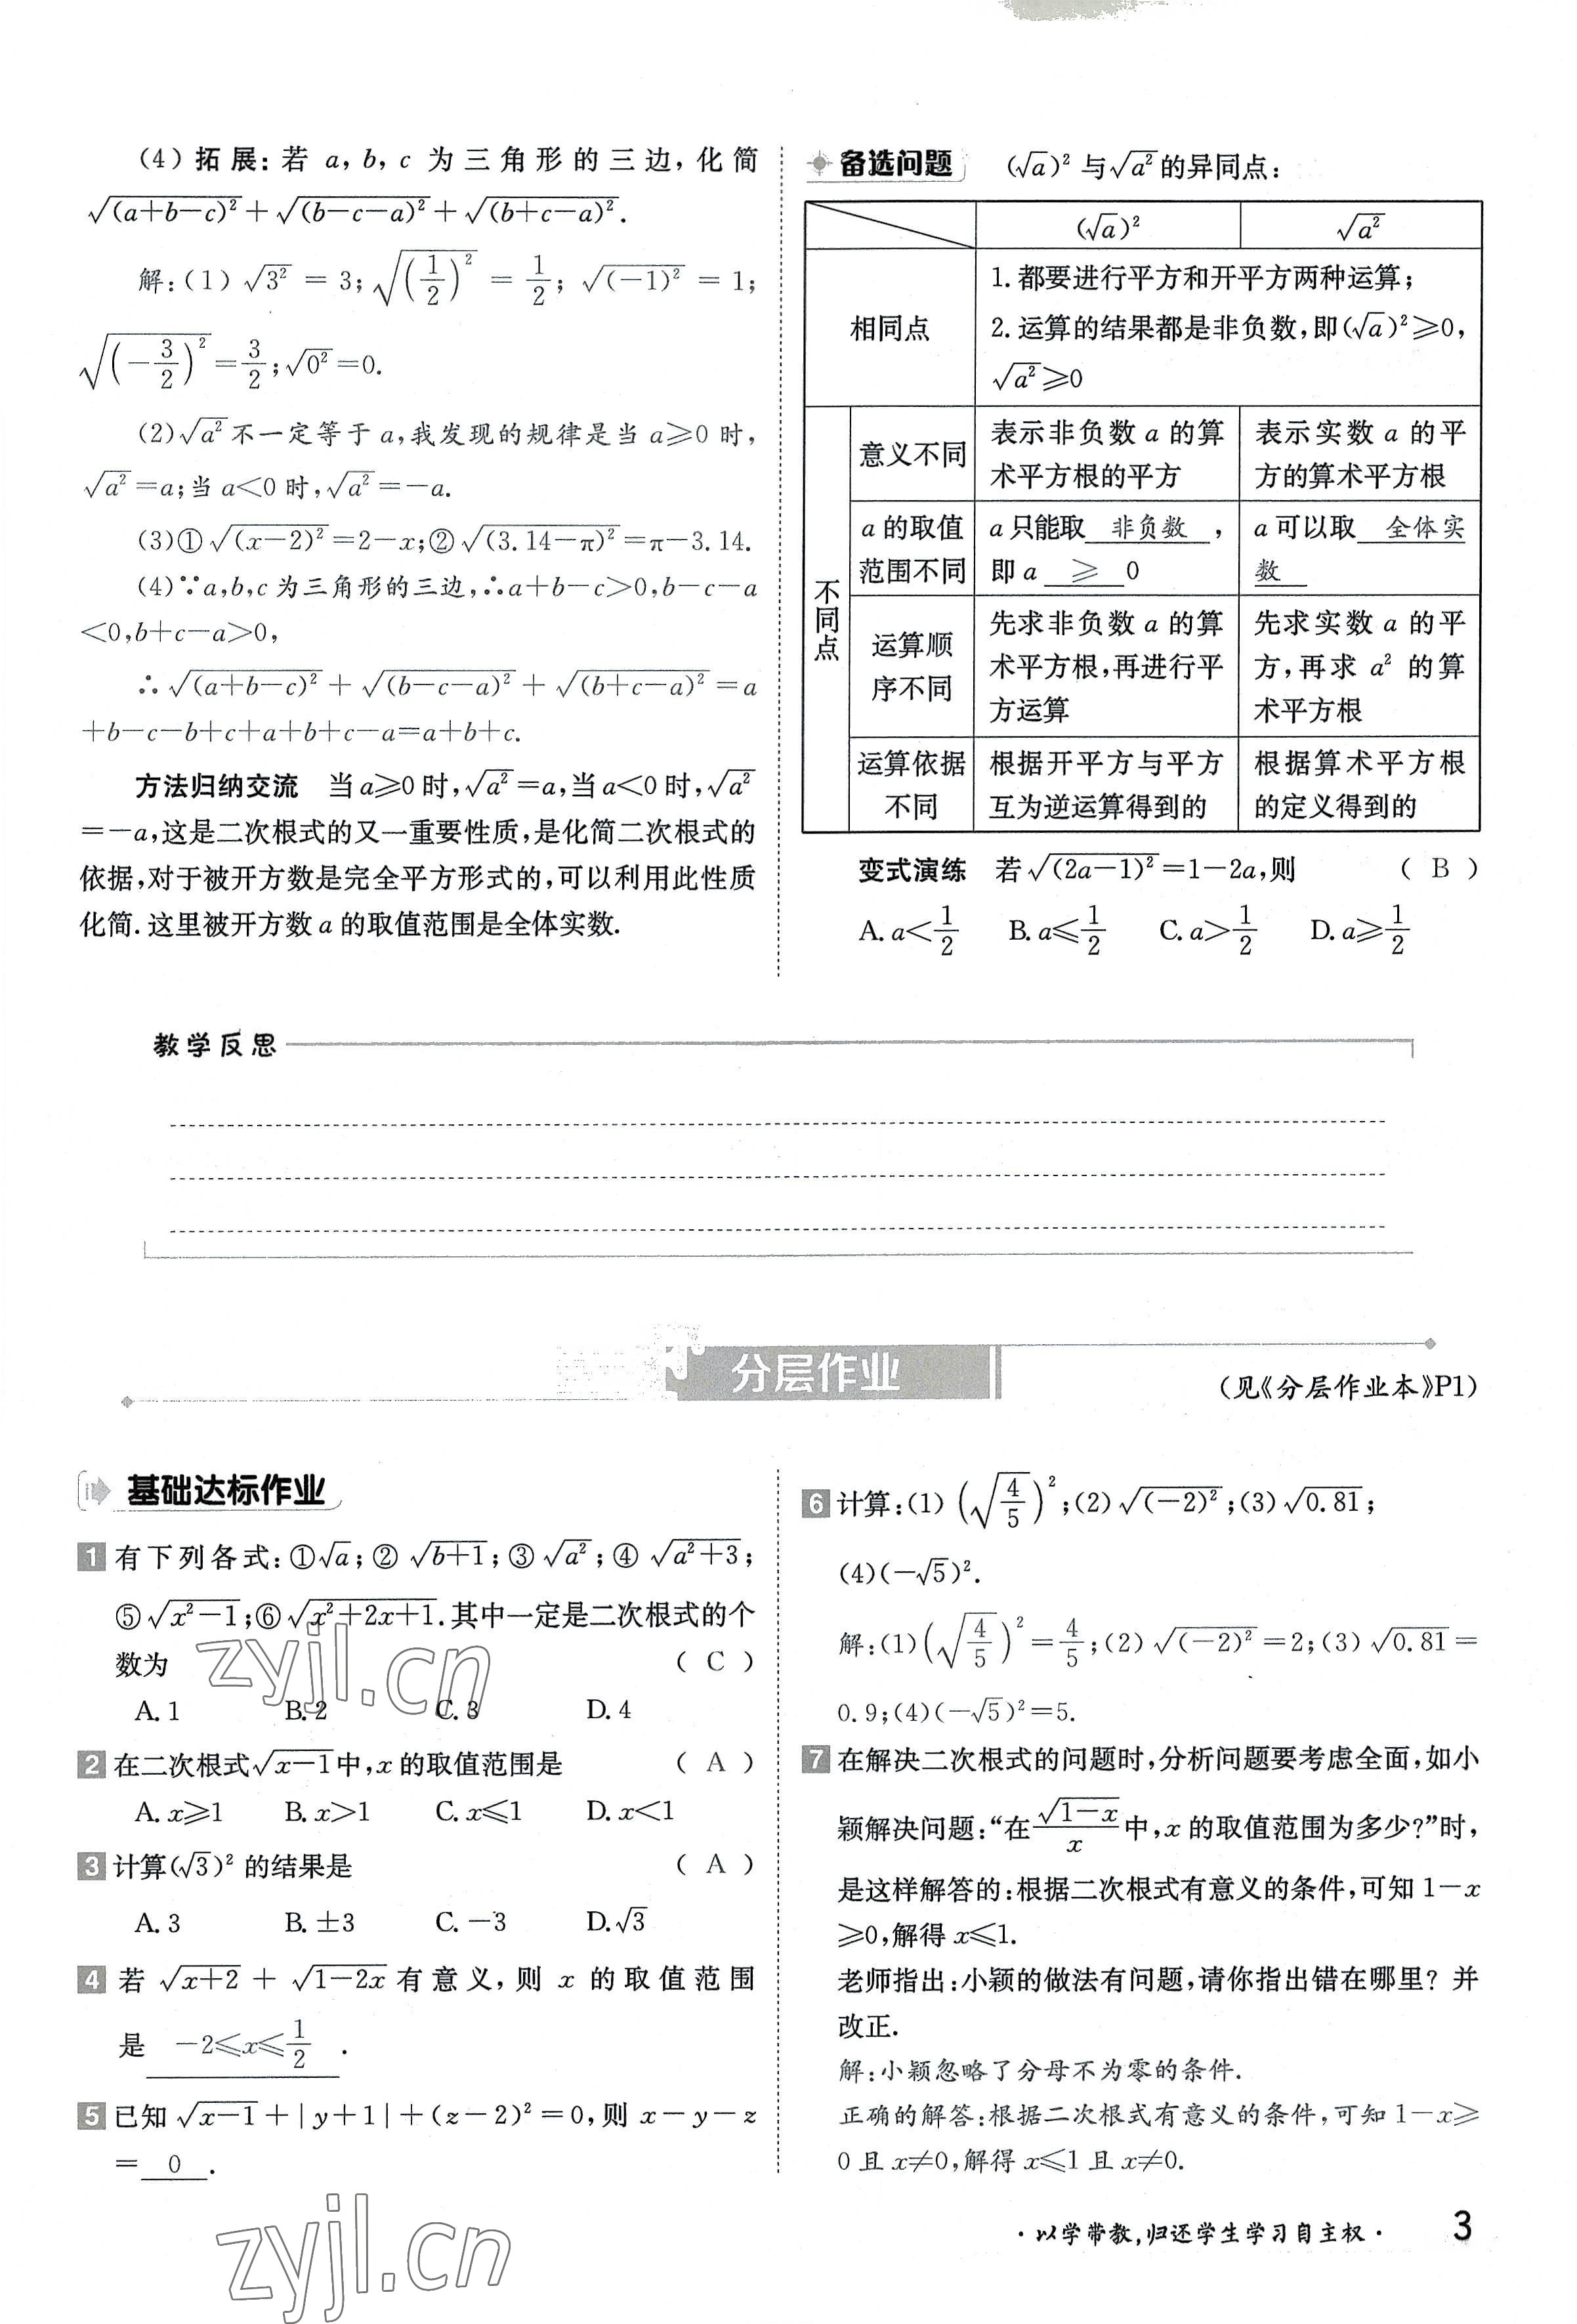 (4)拓展:若 a,b,c 为三角形的三边,化简
√(a+b−c)²+√(b−c−a)²+√(b+c−a)².
解:(1)√3²=3;√(1/2)²=1/2;√(−1)²=1;
√(−3/2)²=3/2;√0²=0.
(2)√a²不一定等于 a,我发现的规律是当 a≥0 时,
√a²=a;当 a<0 时,√a²=−a.
(3)①√(x−2)²=2−x;②√(3.14−π)²=π−3.14.
(4)∵a,b,c 为三角形的三边,∴a+b−c>0,b−c−a
<0,b+c−a>0,
∴√(a+b−c)²+√(b−c−a)²+√(b+c−a)²=a
+b−c−b+c+a+b+c−a=a+b+c.
方法归纳交流 当 a≥0 时,√a²=a,当 a<0 时,√a²
=−a,这是二次根式的又一重要性质,是化简二次根式的
依据,对于被开方数是完全平方形式的,可以利用此性质
化简.这里被开方数 a 的取值范围是全体实数.
备选问题 (√a)²与√a²的异同点:
(√a)² √a²
相同点
1.都要进行平方和开平方两种运算;
2.运算的结果都是非负数,即(√a)²≥0,
√a²≥0
不同点
意义不同
表示非负数 a 的算
术平方根的平方
表示实数 a 的平
方的算术平方根
a 的取值
范围不同
a 只能取 非负数 ,
即 a ≥ 0
a 可以取 全体实
数
运算顺
序不同
先求非负数 a 的算
术平方根,再进行平
方运算
先求实数 a 的平
方,再求 a² 的算
术平方根
运算依据
不同
根据开平方与平方
互为逆运算得到的
根据算术平方根
的定义得到的
变式演练 若√(2a−1)²=1−2a,则 ( B )
A.a<1/2 B.a≤1/2 C.a>1/2 D.a≥1/2
教学反思
分层作业
(见《分层作业本》P1)
基础达标作业
1 有下列各式:①√a;②√(b+1);③√a²;④√(a²+3);
⑤√(x²−1);⑥√(x²+2x+1).其中一定是二次根式的个
数为 ( C )
A.1 B.2 C.3 D.4
2 在二次根式√(x−1)中,x 的取值范围是 ( A )
A.x≥1 B.x>1 C.x≤1 D.x<1
3 计算(√3)²的结果是 ( A )
A.3 B.±3 C.−3 D.√3
4 若√(x+2)+√(1−2x)有意义,则 x 的取值范围
是 −2≤x≤1/2 .
5 已知√(x−1)+|y+1|+(z−2)²=0,则 x−y−z
= 0 .
6 计算:(1)(√(4/5))²;(2)√(−2)²;(3)√0.81;
(4)(−√5)².
解:(1)(√(4/5))²=4/5;(2)√(−2)²=2;(3)√0.81=
0.9;(4)(−√5)²=5.
7 在解决二次根式的问题时,分析问题要考虑全面,如小
颖解决问题:“在√(1−x)/x中,x 的取值范围为多少?”时,
是这样解答的:根据二次根式有意义的条件,可知 1−x
≥0,解得 x≤1.
老师指出:小颖的做法有问题,请你指出错在哪里?并
改正.
解:小颖忽略了分母不为零的条件.
正确的解答:根据二次根式有意义的条件,可知 1−x≥
0 且 x≠0,解得 x≤1 且 x≠0.
·以学带教,归还学生学习自主权· 3
zyjl.cn
zyjl.cn